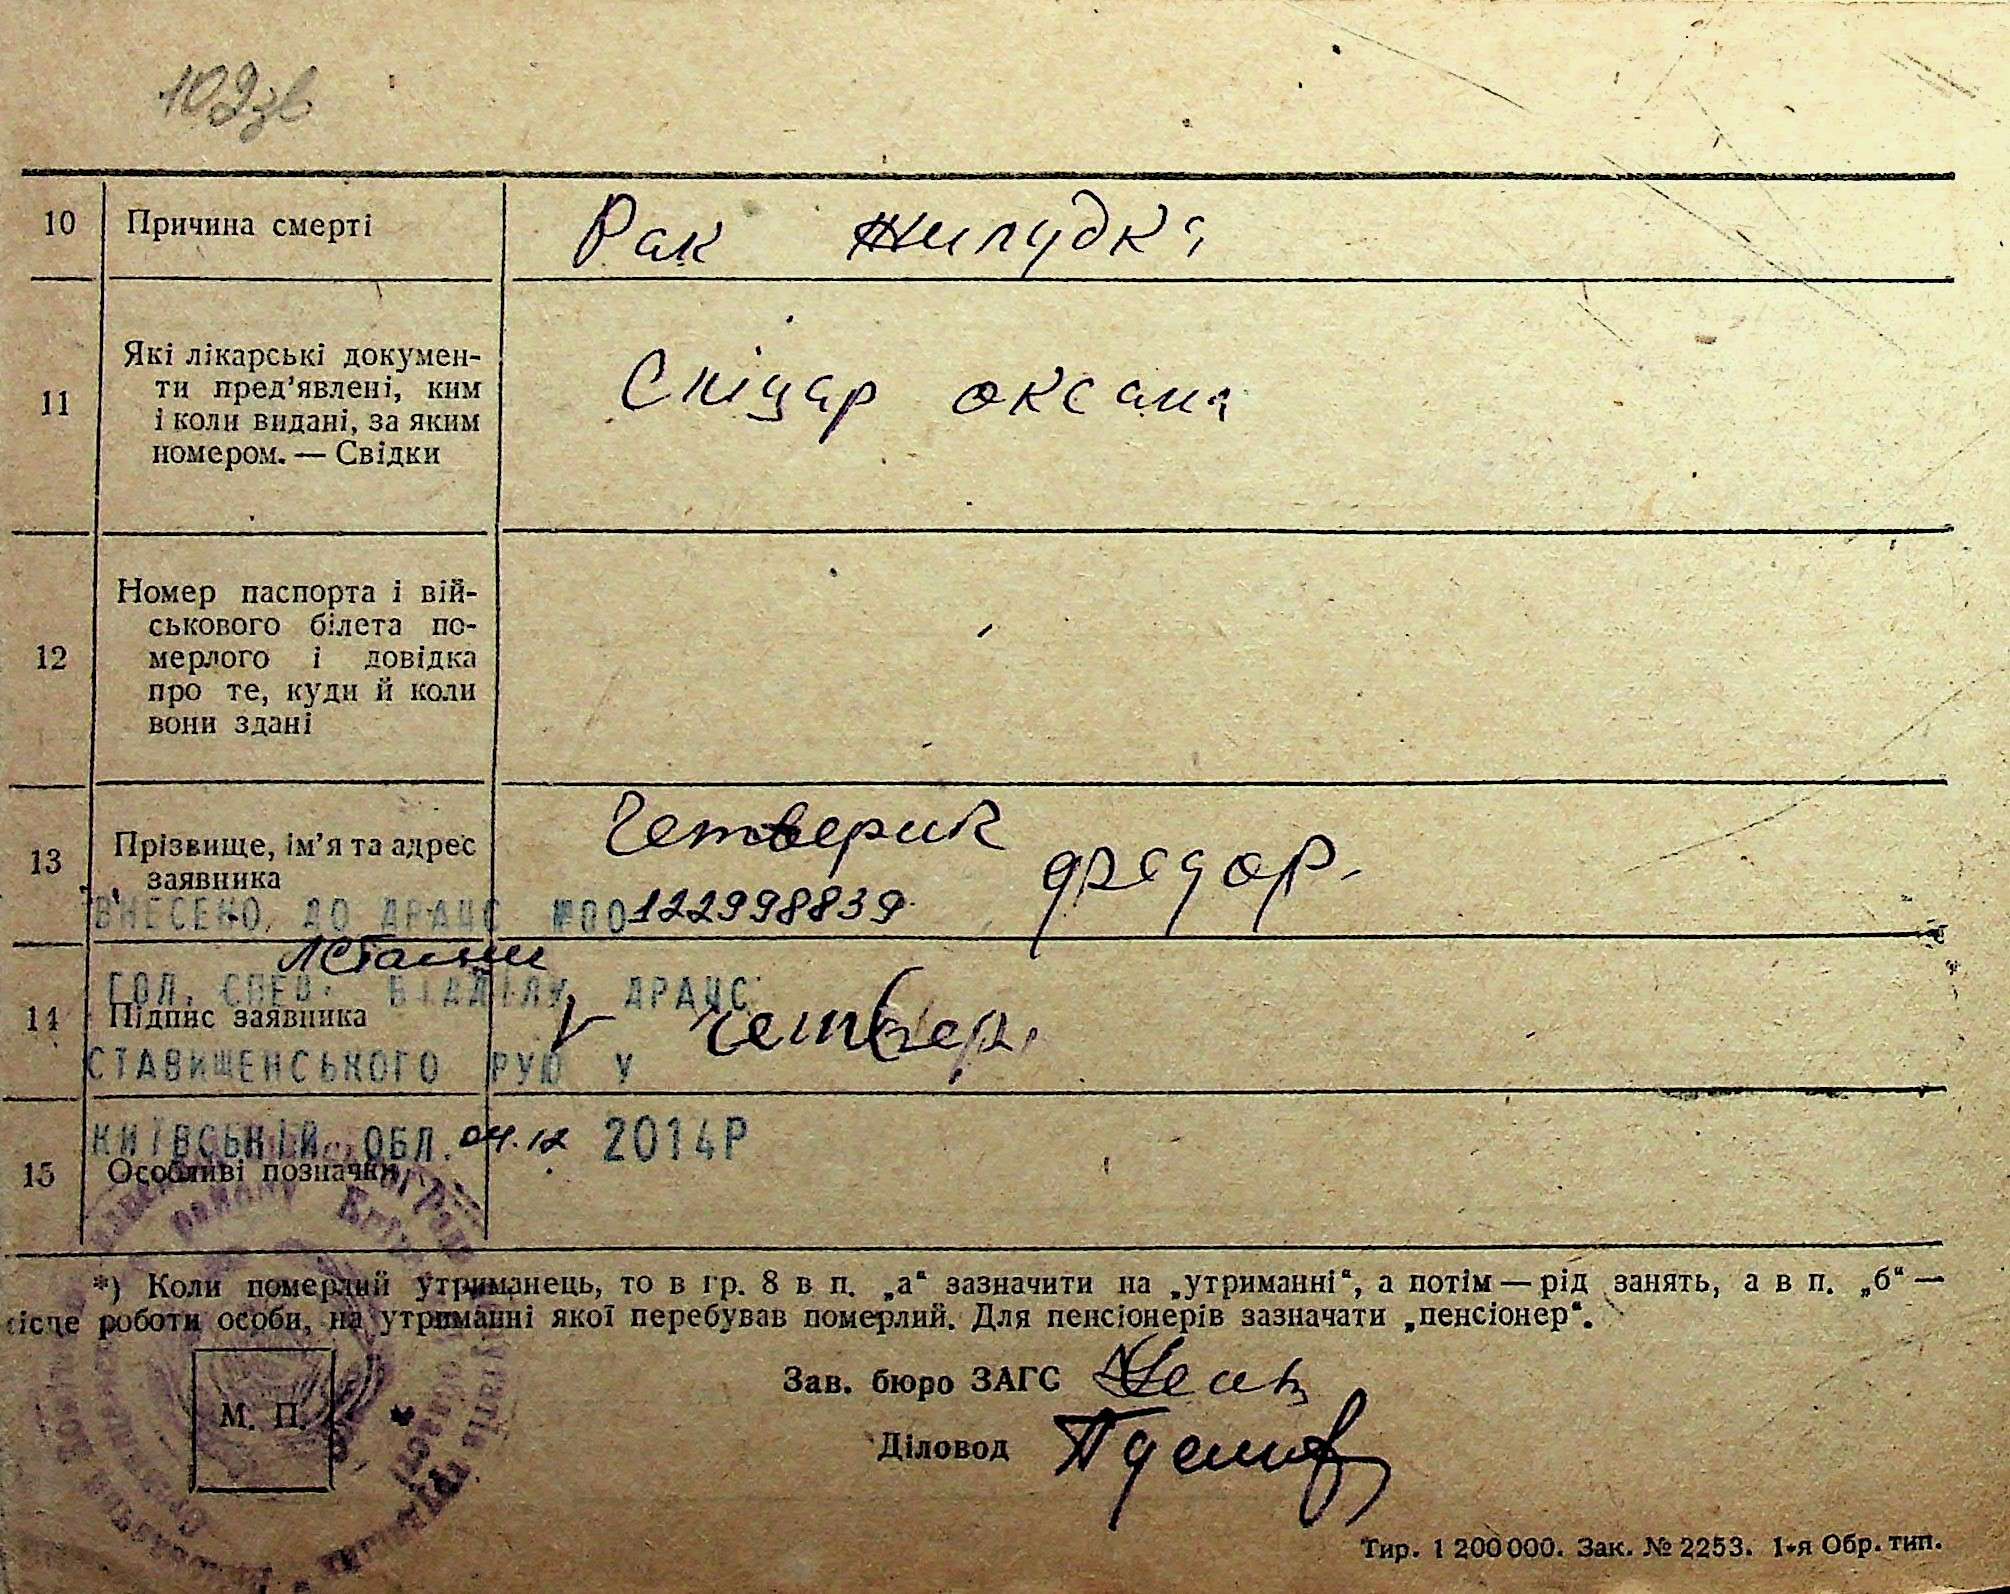 102зв
10 Причина смерті Рак жилудка
11 Які лікарські докумен-
ти пред’явлені, ким
і коли видані, за яким
номером. — Свідки
Сніцар оксана
12 Номер паспорта і вій-
ськового білета по-
мерлого і довідка
про те, куди й коли
вони здані
13 Прізвище, ім’я та адрес
заявника
Четверик
Федор.
ВНЕСЕНО ДО ДРАЦС №00122998839
ГОЛ. СПЕЦ. ВІДДІЛУ ДРАЦС
14 Підпис заявника V Четвер.
СТАВИЩЕНСЬКОГО РУЮ У
КИЇВСЬКІЙ ОБЛ. 04.12 2014Р
15 Особливі позначки
*) Коли померлий утриманець, то в гр. 8 в п. „а“ зазначити на „утриманні“, а потім — рід занять, а в п. „б“ —
місце роботи особи, на утриманні якої перебував померлий. Для пенсіонерів зазначати „пенсіонер“.
Зав. бюро ЗАГС
М. П.
Діловод
Тир. 1 200 000. Зак. № 2253. 1-я Обр. тип.